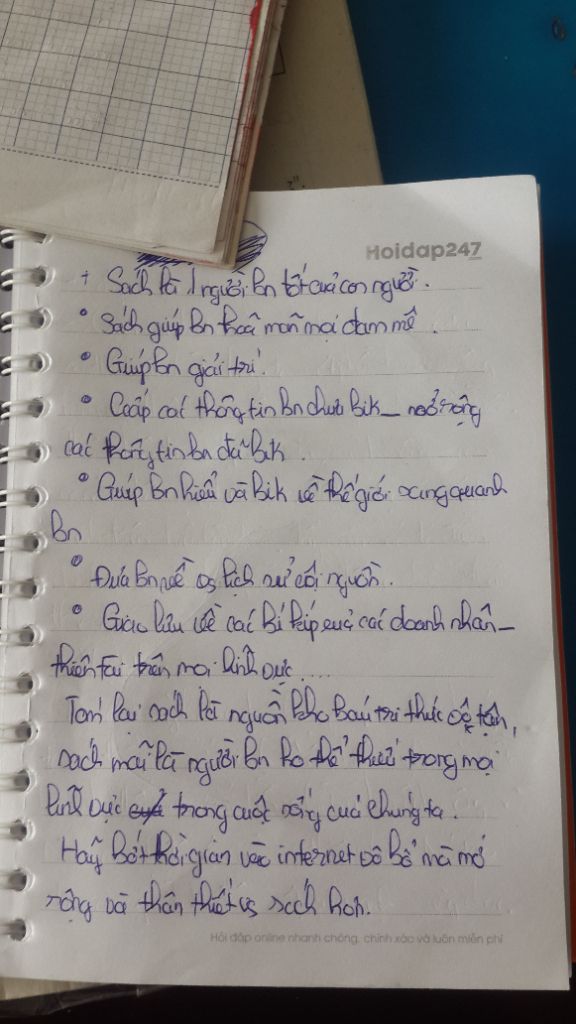 Hoidap247
+ Sách là 1 người bn tốt của con người.
• Sách giúp bn thoả mãn mọi đam mê.
• Giúp bn giải trí.
• Cấp các thông tin bn chưa bik_ mở rộng
các thông tin bn đã bik.
• Giúp bn hiểu và bik về thế giới xung quanh
bn
• Đưa bn về vs lịch sử cội nguồn.
• Giao lưu về các bí kíp của các doanh nhân_
thiên tài trên mọi lĩnh vực....
Tóm lại sách là nguồn kho báu tri thức vô tận,
sách mãi là người bn ko thể thiếu trong mọi
lĩnh vực trong cuộc sống của chúng ta.
Hãy bớt thời gian vào internet vô bổ mà mở
rộng và thân thiết vs sách hơn.
Hỏi đáp online nhanh chóng, chính xác và luôn miễn phí